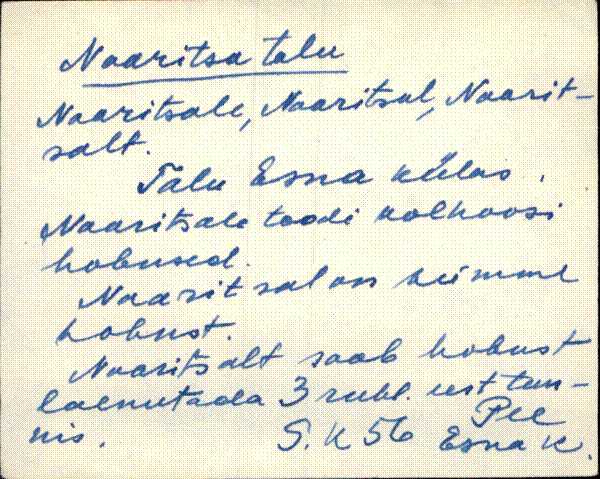 Naaritsa talu
Naaritsale, Naaritsal, Naarit-
salt.
Talu Esna külas.
Naaritsale toodi kolhoosi
hobused.
Naaritsal on kümme
hobust.
Naaritsalt saab hobust
laenutada 3 rubl. eest tun-
nis.
S. K 56 Pee
Esna k.